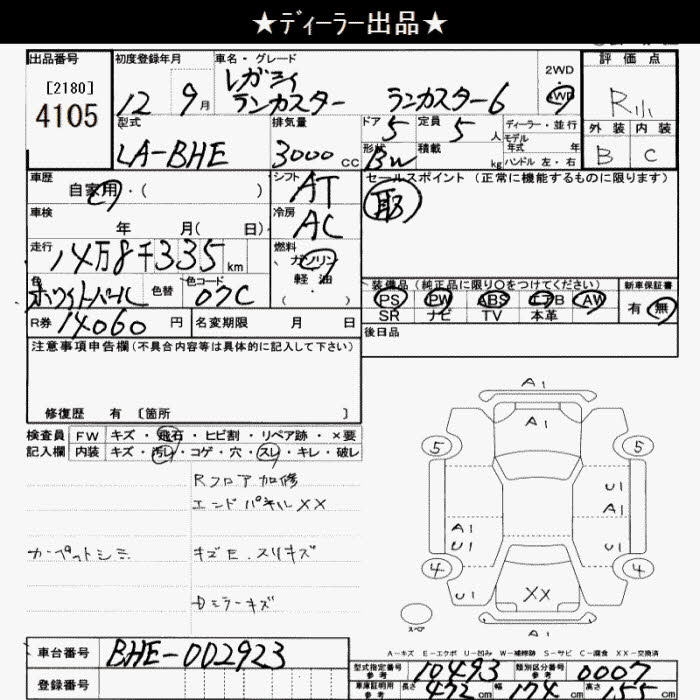 ★ディーラー出品★
出品番号 初度登録年月 車名・グレード 評価点
[2180] レガシィ 2WD
4105 12 9月 ランカスター ランカスター6 AWD R小
型式 排気量 ドア 定員 ディーラー・並行 外装 内装
5 5人 モデル年式 年
LA-BHE 3000cc 形状 BW 積載 kg ハンドル 左・右 B C
車歴 シフト セールスポイント (正常に機能するものに限ります)
自家用・( ) AT 取
車検 冷房
年 月( 日) AC
走行 燃料
14万8千335km ガソリン
軽油
色 色替 色コード ・( ) 装備品 (純正品に限り○をつけてください) 新車保証書
ホワイトパール 07C PS PW ABS エアB AW 有 無
SR ナビ TV 本革
R券 14060円 名変期限 月 日 後日品
注意事項申告欄 (不具合内容等は具体的に記入して下さい)
修復歴 有 〔箇所 〕
検査員 FW キズ・飛石・ヒビ割・リペア跡・×要
記入欄 内装 キズ・汚レ・コゲ・穴・スレ・キレ・破レ
Rフロア加修
エンドパネルXX
カーペットシミ キズE.スリキズ
ミラーキズ
A1
A1
5 5
U1
A1 A1
U1 U1
4 4
U1 XX
スペア A1
A-キズ E-エクボ U-凹み W-補修跡 S-サビ C-腐食 XX-交換済
車台番号 BHE-002923 型式指定番号 参考 10493 類別区分番号 参考 0007
登録番号 車庫証明用 参考 長さ 472cm 幅 174cm 高さ cm